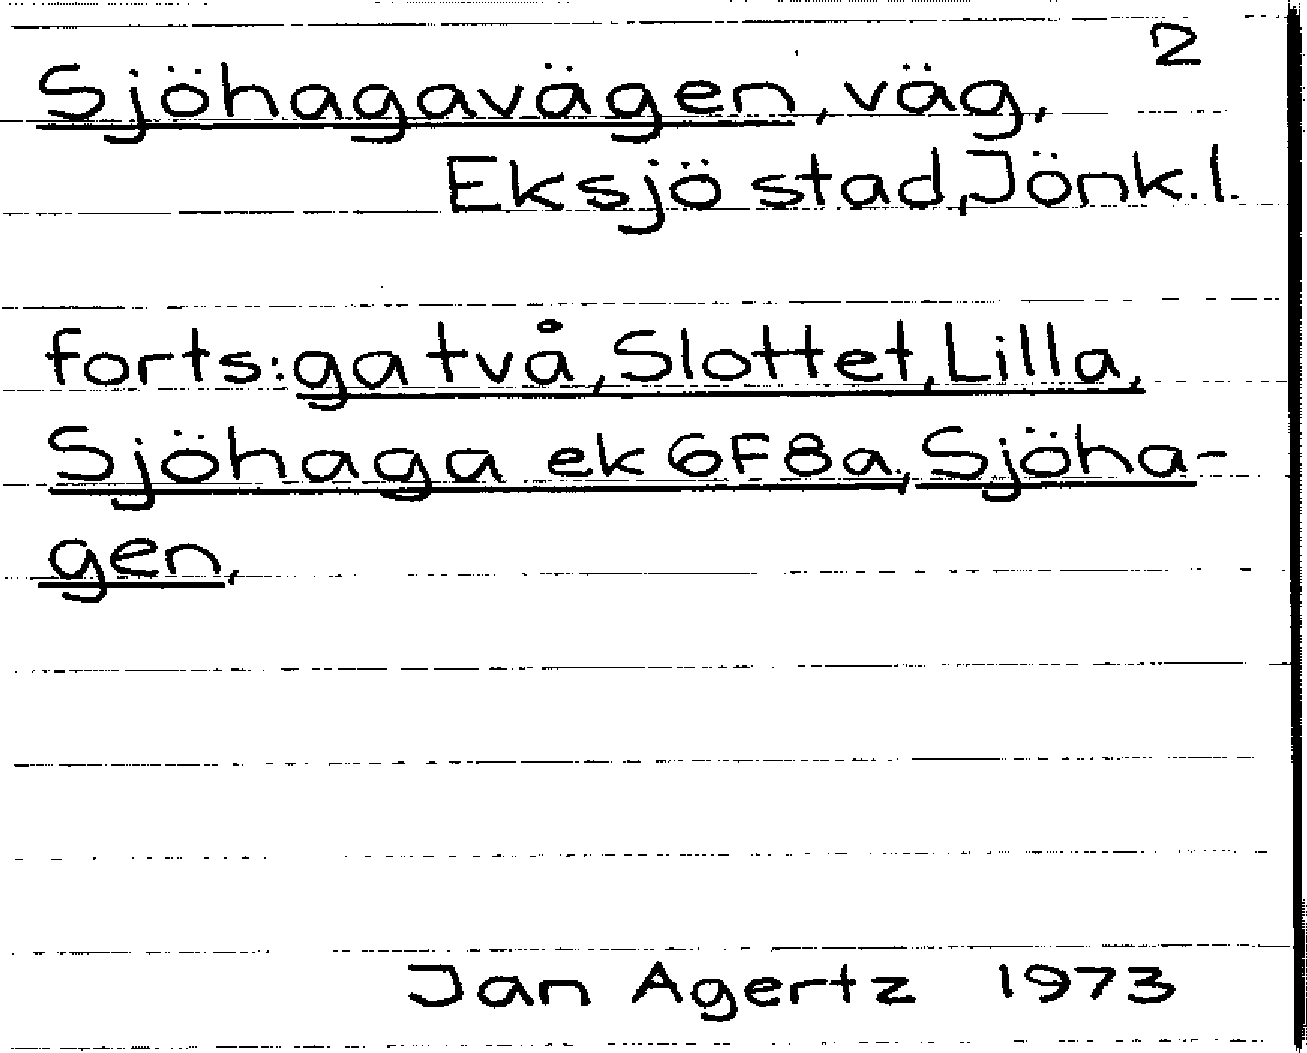 2
Sjöhagavägen, väg,
Eksjö stad, Jönk.l.
forts: ga två, Slottet, Lilla,
Sjöhaga ek 6F8a., Sjöha-
gen,
Jan Agertz 1973